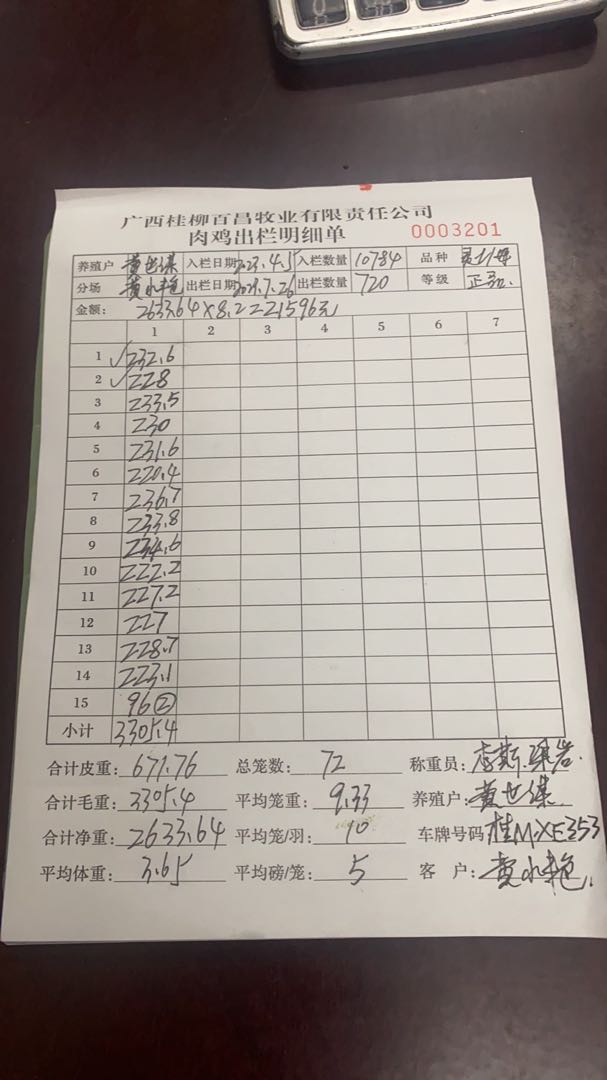 广西桂柳百昌牧业有限责任公司
肉鸡出栏明细单 0003201
养殖户 黄世谋 入栏日期 2023.4.5 入栏数量 10784 品种
分场 出栏日期 2023.7.26 出栏数量 720 等级 正品
金额: 2633.64×8.2=21596元
1 2 3 4 5 6 7
1 ✓232.6
2 ✓228
3 233.5
4 230
5 231.6
6 220.4
7 236.7
8 233.8
9 234.6
10 222.2
11 227.2
12 227
13 228.7
14 223.1
15 96②
小计 3305.4
合计皮重: 671.76 总笼数: 72 称重员:
合计毛重: 3305.4 平均笼重: 9.33 养殖户: 黄世谋
合计净重: 2633.64 平均笼/羽: 10 车牌号码 桂MXE353
平均体重: 3.65 平均磅/笼: 5 客户: